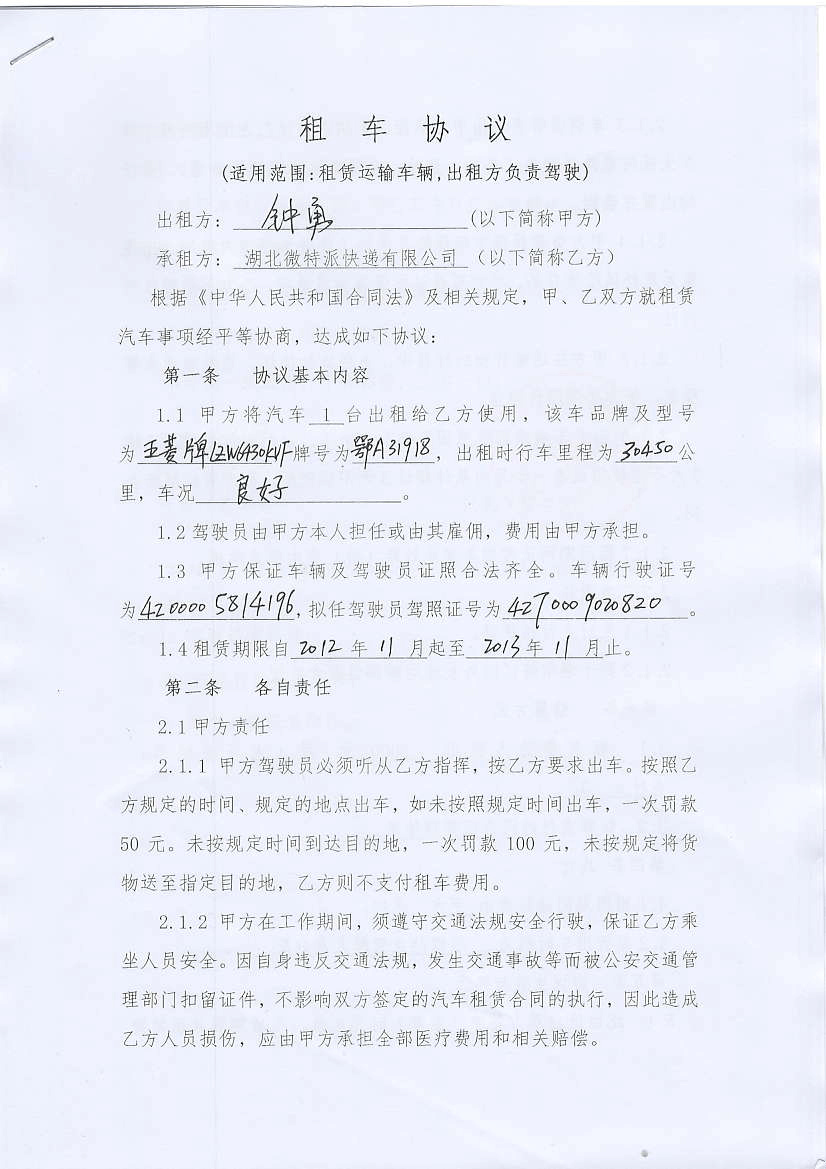 租 车 协 议
(适用范围:租赁运输车辆,出租方负责驾驶)
出租方: 钟勇 (以下简称甲方)
承租方: 湖北微特派快递有限公司 (以下简称乙方)
根据《中华人民共和国合同法》及相关规定，甲、乙双方就租赁
汽车事项经平等协商，达成如下协议:
第一条 协议基本内容
1.1 甲方将汽车 1 台出租给乙方使用，该车品牌及型号
为 五菱牌LZW6430KVF 牌号为鄂A31918，出租时行车里程为 30450 公
里，车况 良好 。
1.2 驾驶员由甲方本人担任或由其雇佣，费用由甲方承担。
1.3 甲方保证车辆及驾驶员证照合法齐全。车辆行驶证号
为 4200005814196,拟任驾驶员驾照证号为 4270009020820 。
1.4 租赁期限自 2012 年 11 月起至 2013 年 11 月止。
第二条 各自责任
2.1 甲方责任
2.1.1 甲方驾驶员必须听从乙方指挥，按乙方要求出车。按照乙
方规定的时间、规定的地点出车，如未按照规定时间出车，一次罚款
50 元。未按规定时间到达目的地，一次罚款 100 元，未按规定将货
物送至指定目的地，乙方则不支付租车费用。
2.1.2 甲方在工作期间，须遵守交通法规安全行驶，保证乙方乘
坐人员安全。因自身违反交通法规，发生交通事故等而被公安交通管
理部门扣留证件，不影响双方签定的汽车租赁合同的执行，因此造成
乙方人员损伤，应由甲方承担全部医疗费用和相关赔偿。